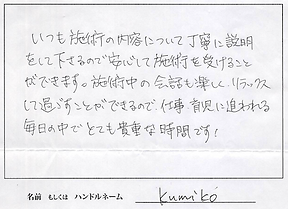 いつも施術の内容について丁寧に説明
をして下さるので安心して施術を受けること
ができます。施術中の会話も楽しく、リラックス
して過ごすことができるので、仕事、育児に追われる
毎日の中でとても貴重な時間です!
名前 もしくは ハンドルネーム kumiko